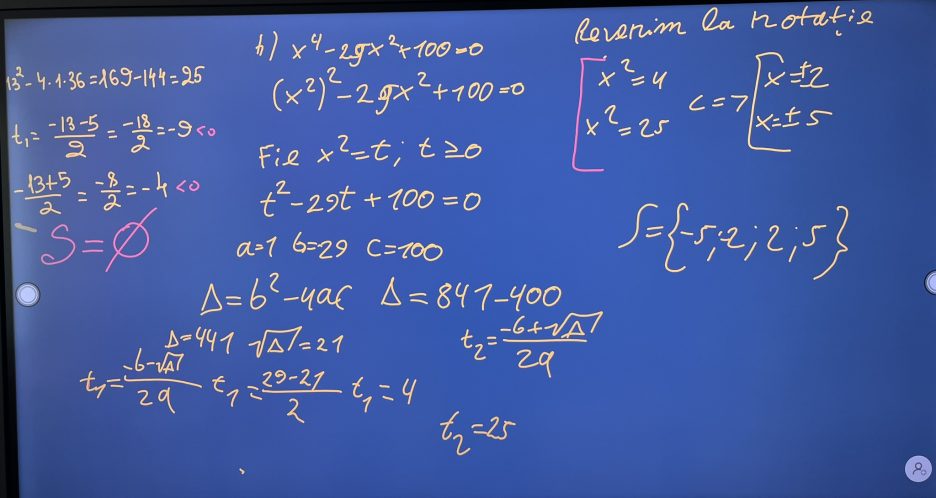 13² - 4·1·36 = 169 - 144 = 25
t₁ = (-13-5)/2 = -18/2 = -9 < 0
(-13+5)/2 = -8/2 = -4 < 0
S = ∅
b) x⁴ - 29x² + 100 = 0
(x²)² - 29x² + 100 = 0
Fie x² = t; t ≥ 0
t² - 29t + 100 = 0
a=1 b=29 c=100
Δ = b² - 4ac Δ = 841 - 400
Δ = 441 √Δ = 21
t₁ = (-b-√Δ)/2a t₁ = (29-21)/2 t₁ = 4
t₂ = (-b+√Δ)/2a
t₂ = 25
Revenim la notație
[x² = 4
x² = 25
<=> [x = ±2
x = ±5
S = {-5; -2; 2; 5}